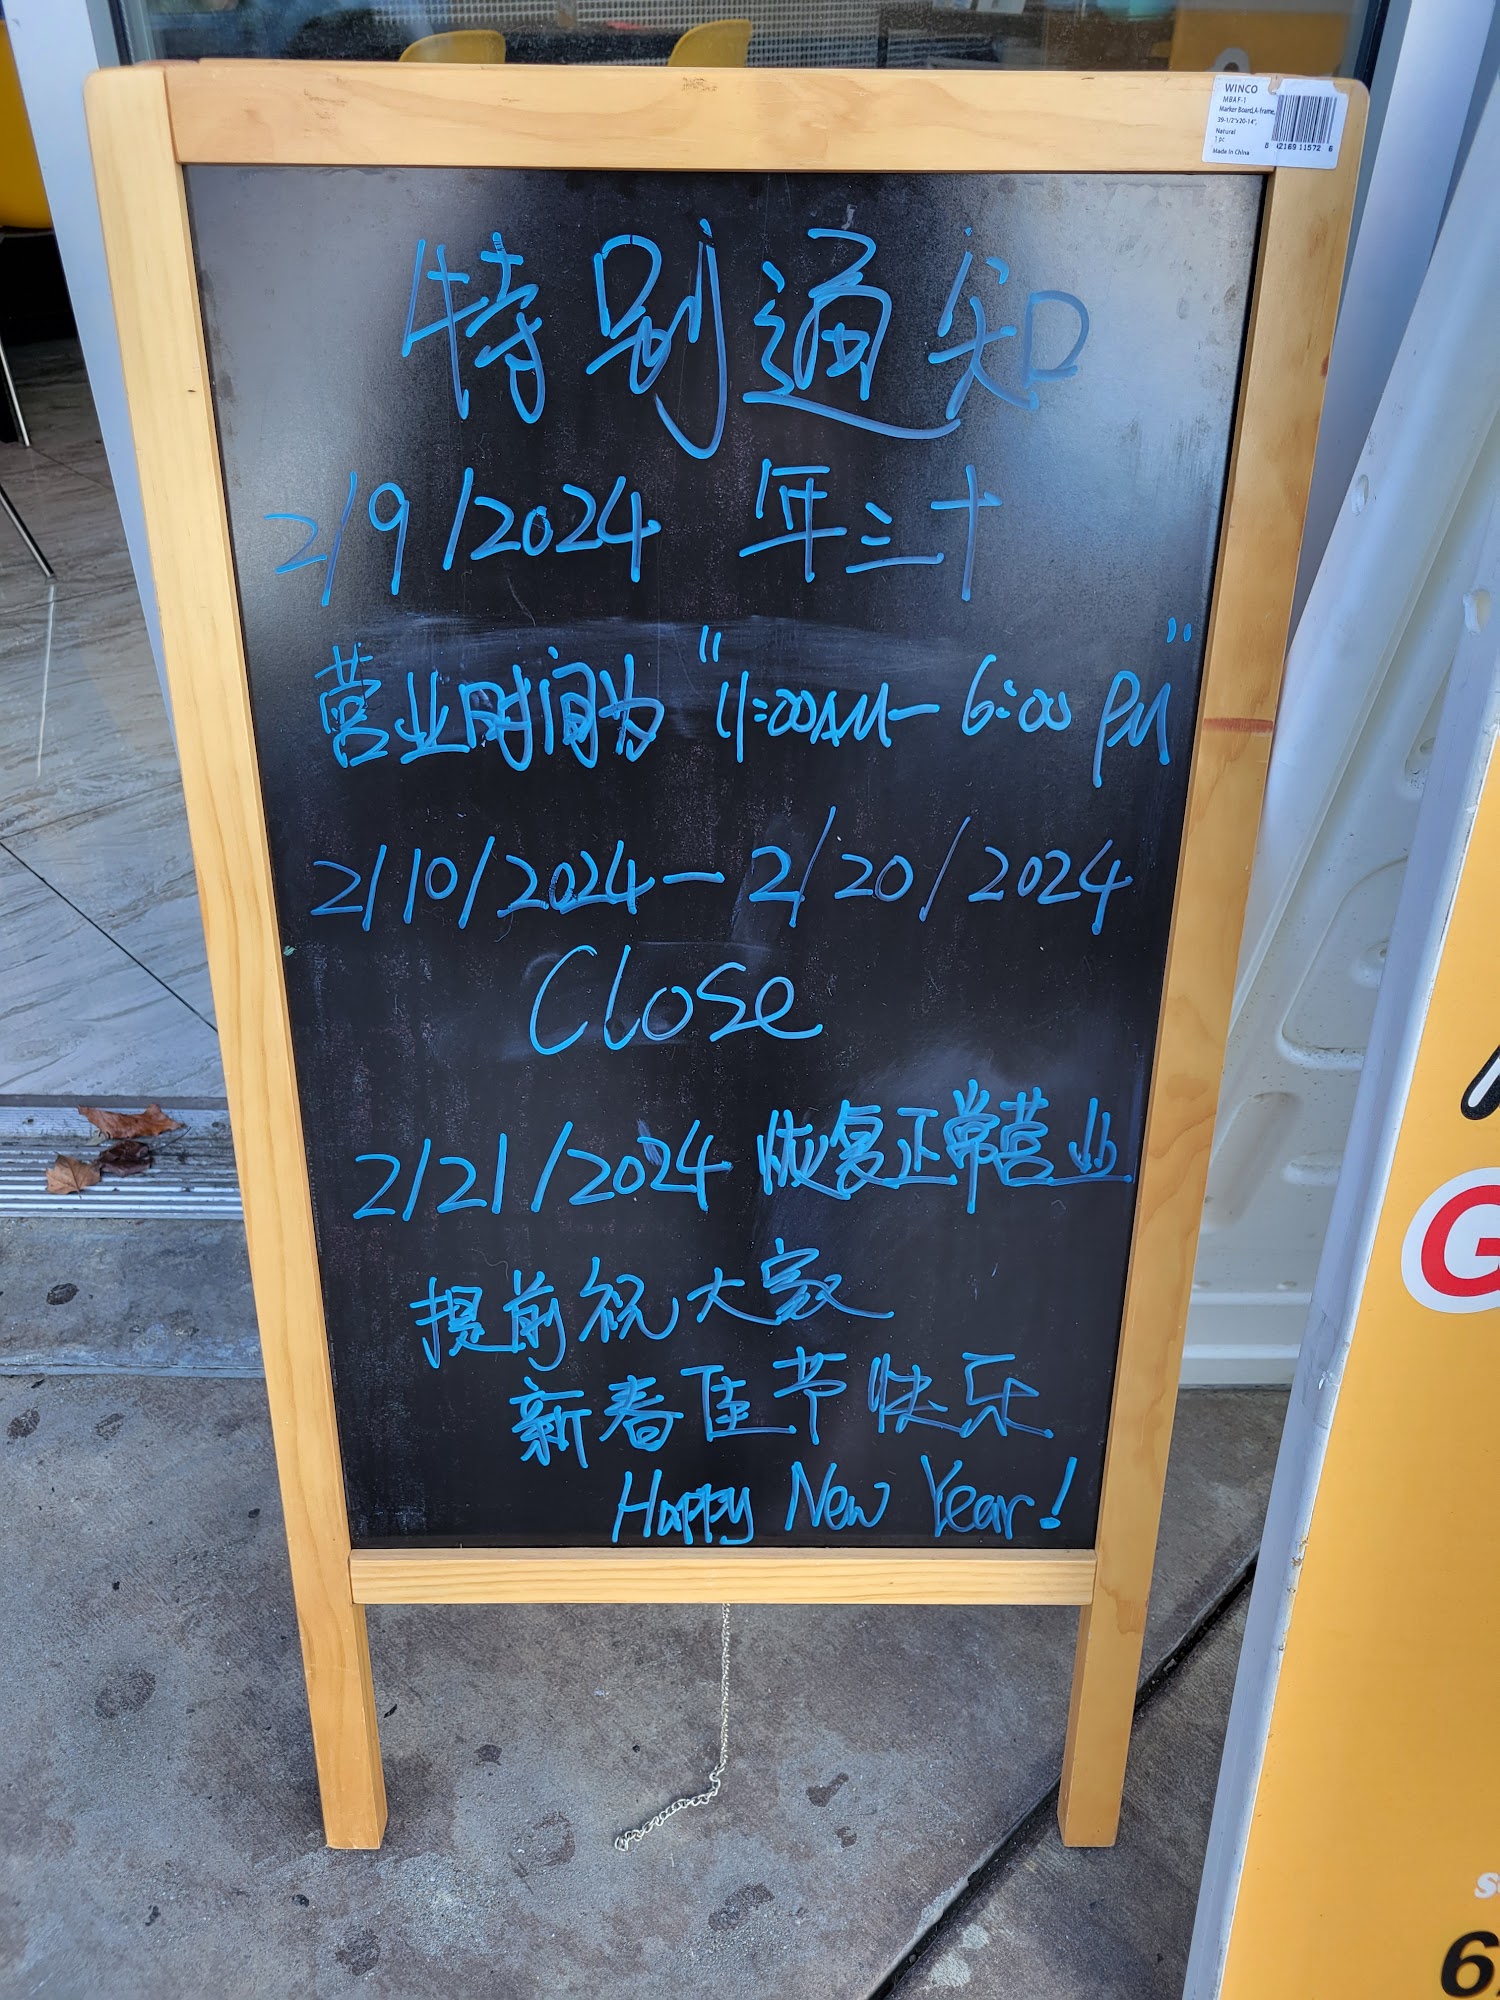 WINCO
MBAF-1
Marker Board,A-frame,
39-1/2"x20-14",
Natural
1 pc
Made In China
8 42169 11572 6
特别通知
2/9/2024 年三十
营业时间为"11:00AM-6:00 PM"
2/10/2024-2/20/2024
Close
2/21/2024 恢复正常营业
提前祝大家
新春佳节快乐
Happy New Year!
G
6